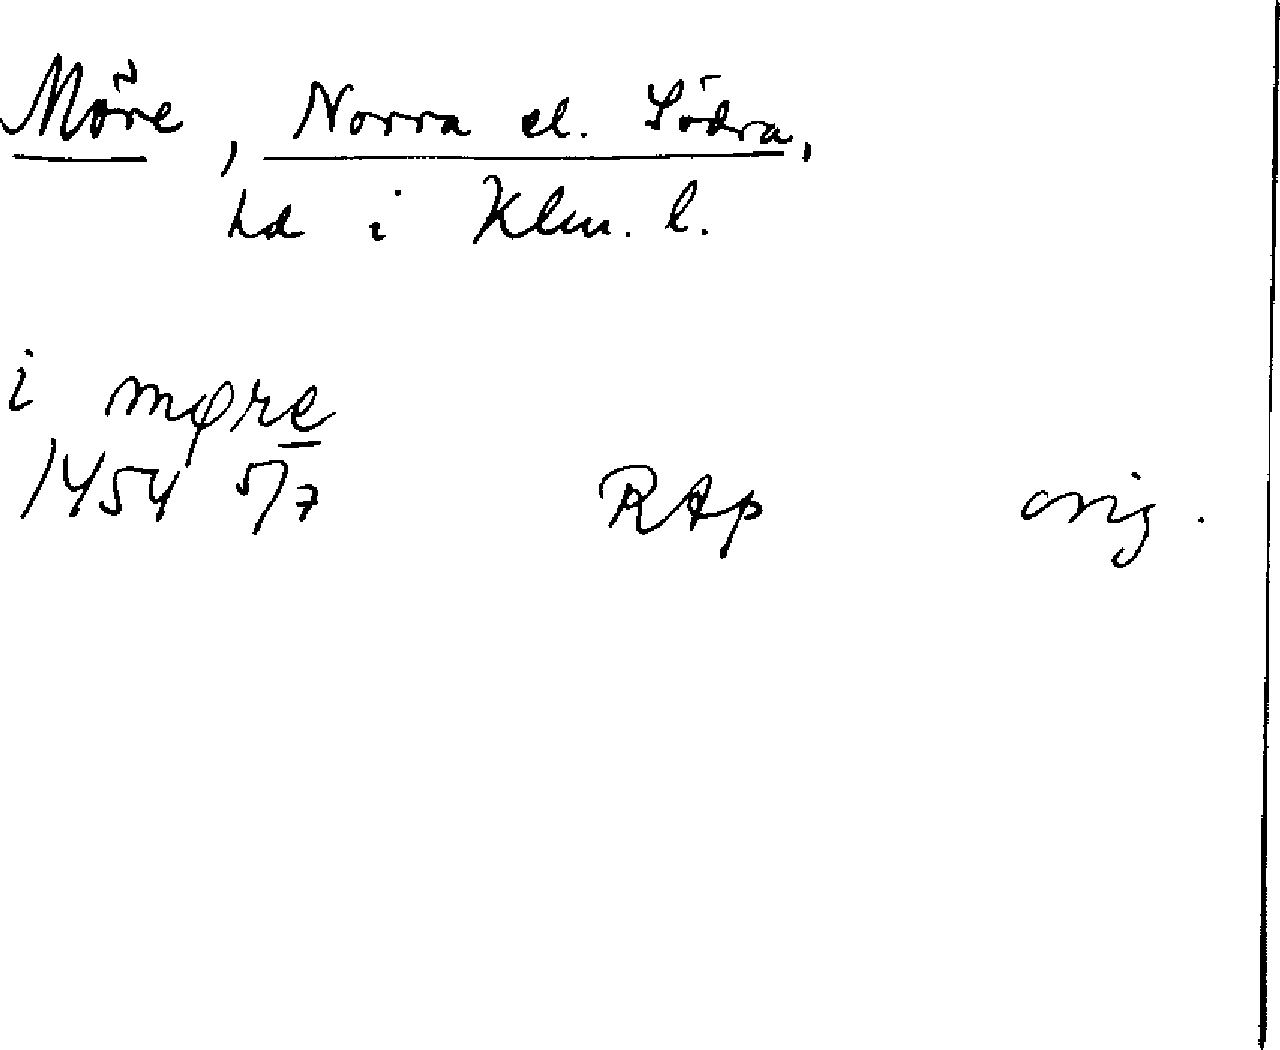 Möre, Norra el. Södra,
hd i Klm. l.
i møre
1454 5/7 RAp orig.